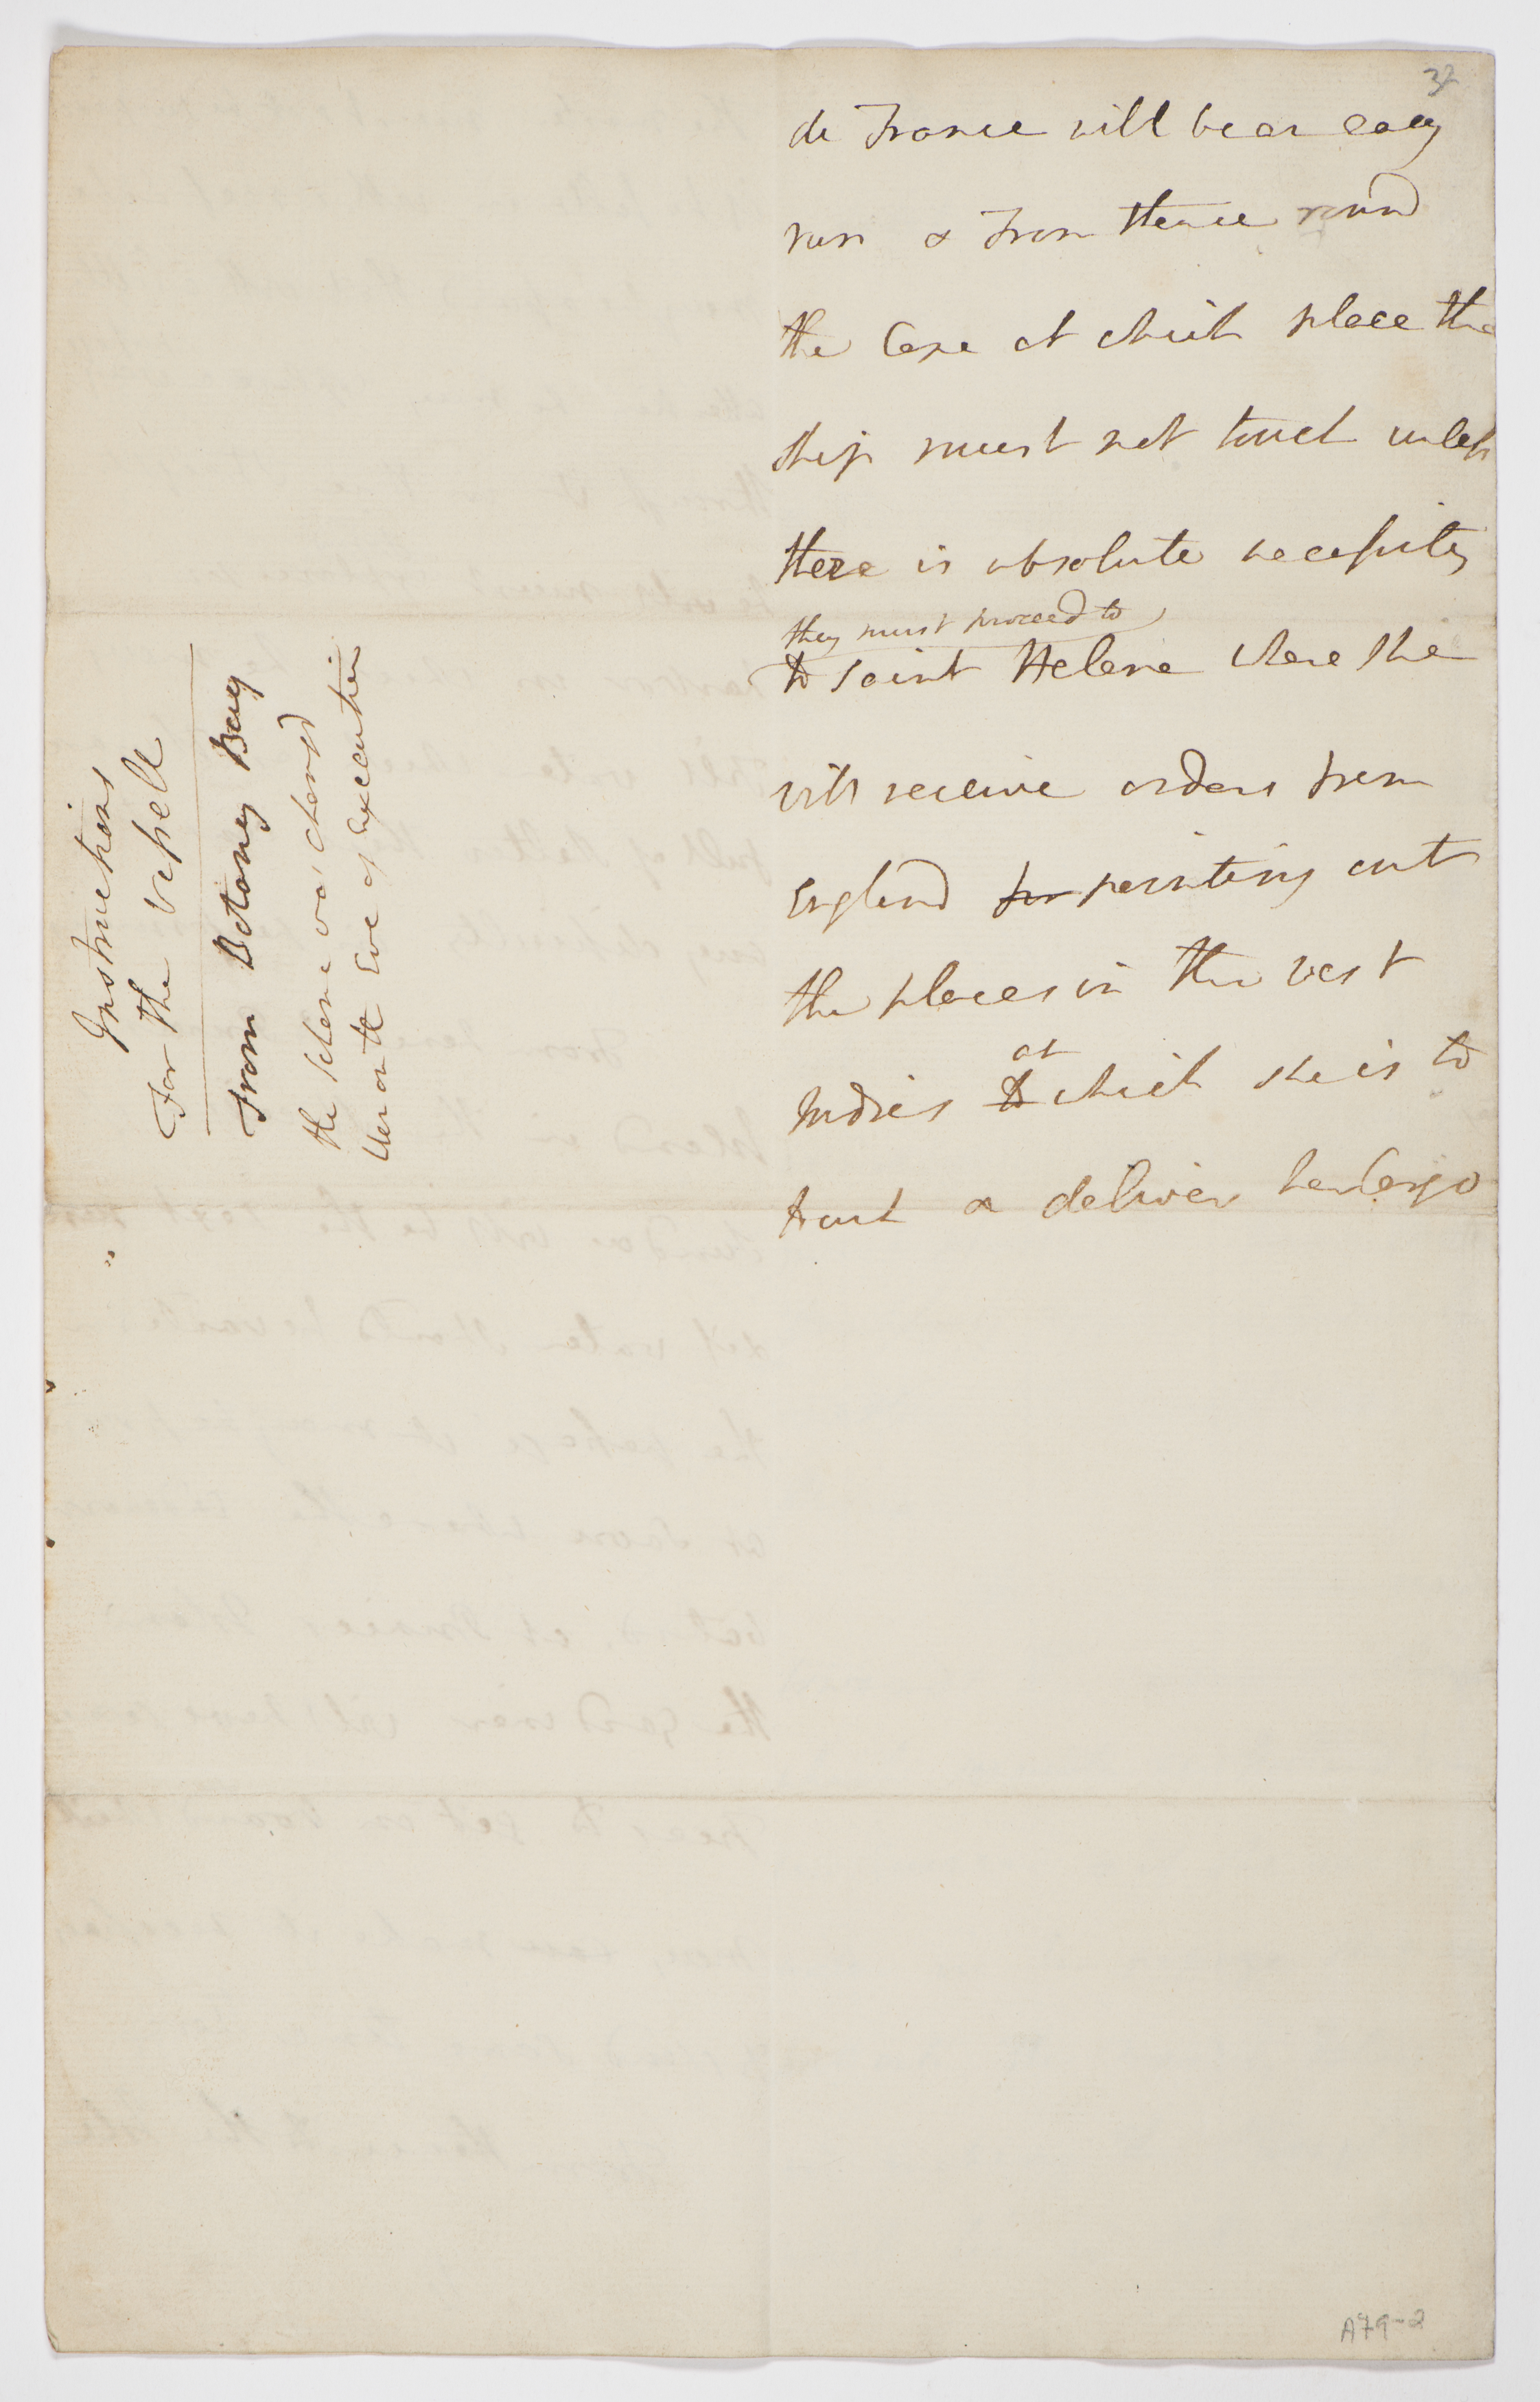 37
de France will bear easy
run & From thence round
the Cape at which place the
ship must not touch unless
there is absolute necessity
they must proceed to
to Saint Helena where she
will receive orders from
England for pointing out
the places in the west
at
Indies to which she is to
touch & deliver her Cargo
Instructions
For the vessell
From Botany Bay
the scheme was changd
upon the Eve of Execution
A79-2